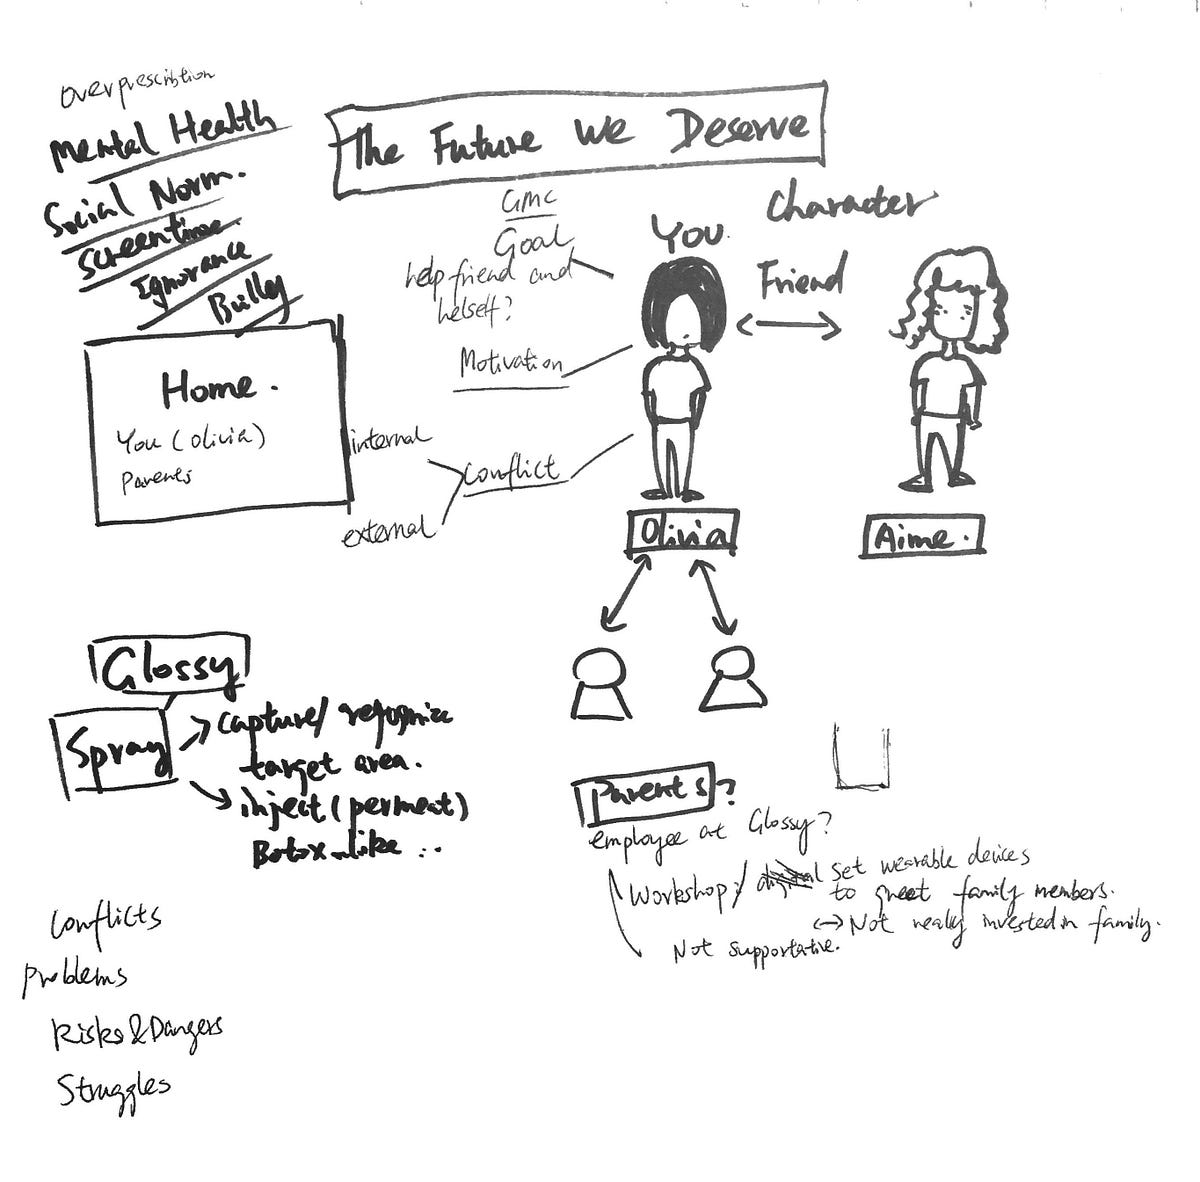 overprescription
Mental Health
Social Norm.
Screentime
Ignorance
Bully
The Future We Deserve
GMC
Goal
help friend and
helself?
Motivation
Conflict
internal
external
You.
Character
Friend
Olivia
Aime.
Home.
You (Olivia)
Parents
Glossy
Spray
capture/ recognize
target area.
inject (perment)
Botox-like ..
Parents?
employee at Glossy?
Workshop / set wearable devices
to greet family members.
↔ Not really invested in family.
Not supportative.
Conflicts
Problems
Risks & Dangers
Struggles